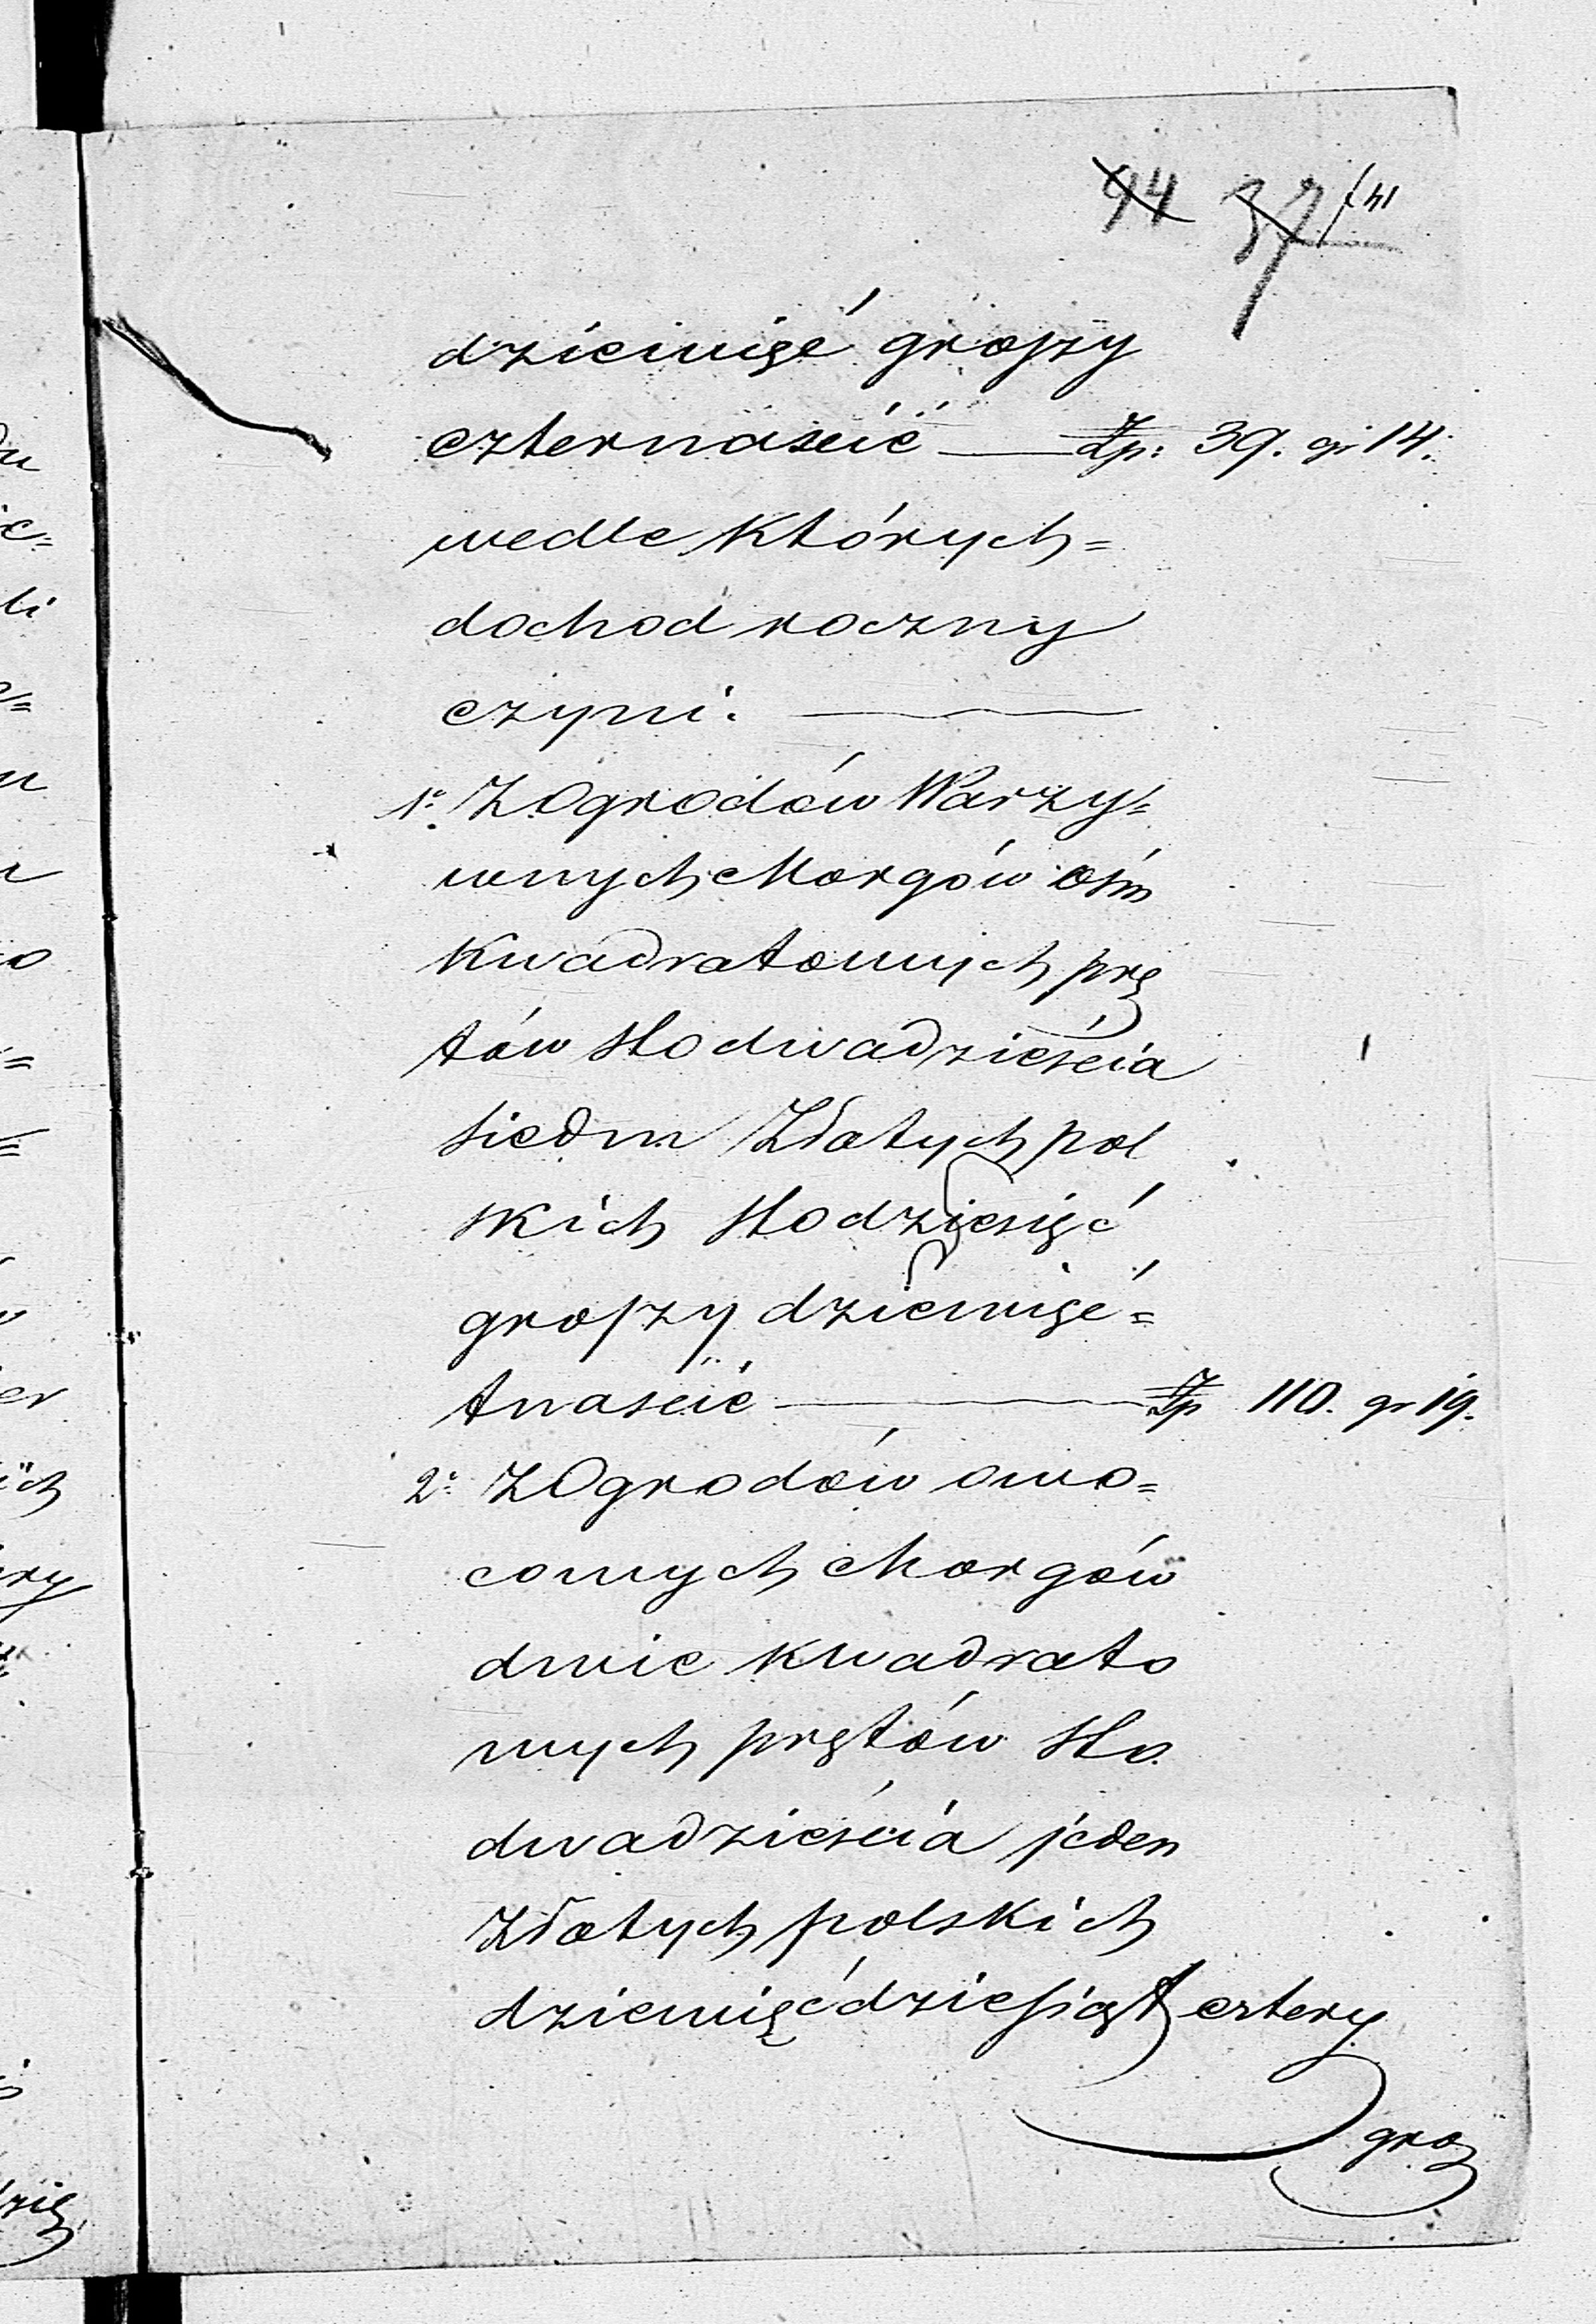 94 37 141
dziewięć groszy
czternaście — Złp: 39. gr 14.
wedle których=
dochod roczny
czyni. —
1º Z Ogrodów Warzy=
wnych Morgów ośm
Kwadratowych prę
tów sto dwadzieścia
siedm Złotych pol
skich sto dziesięć
groszy dziewięć=
tnaście — Złp 110. gr 19.
2º Z Ogrodów owo=
cowych Morgów
dwie kwadrato
wych prętów sto
dwadzieścia jeden
Złotych polskich
dziewięćdziesiąt cztery
gro